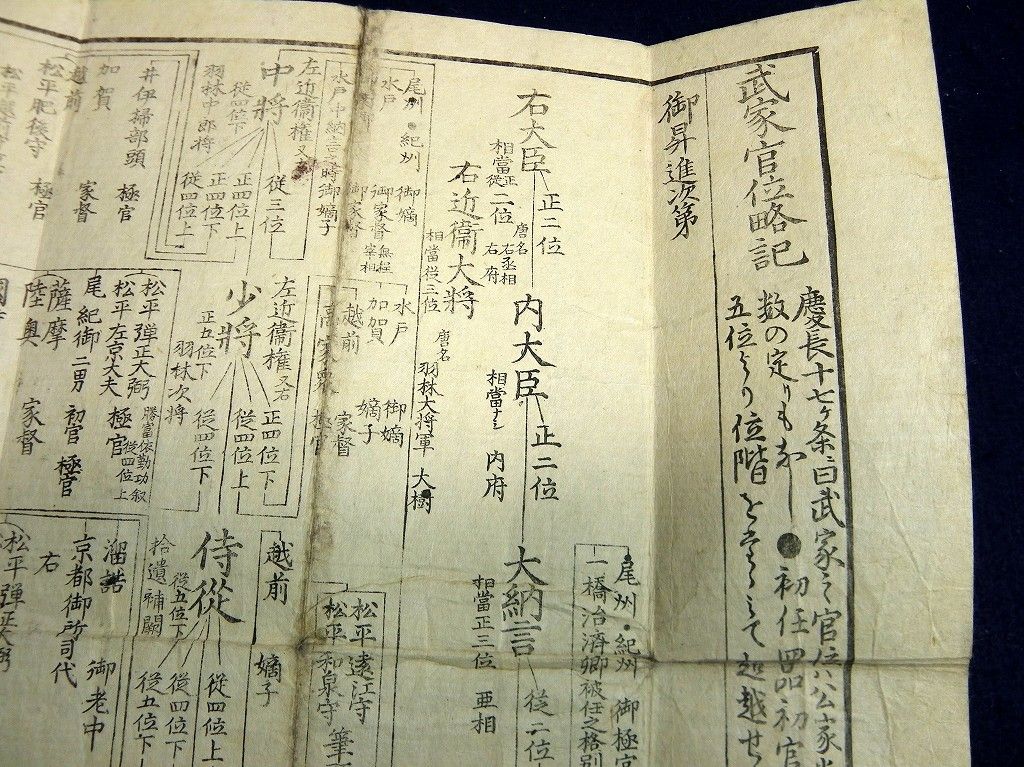 武家官位略記
慶長十七ヶ条ニ曰武家之官位ハ公家当
数の定りもなし●初任四品初官
五位よりの位階を
て超越せ
御昇進次第
右大臣
正二位
相當正従二位
唐名
右丞相
右府
内大臣
正二位
相當ナシ
内府
大納言
従二位
相當正三位
亜相
尾州・紀州
御極官
一橋治済卿被任之格別
右近衞大将
相當従三位
唐名
羽林大将軍
大樹
尾州・紀州
御嫡子
水戸
御家督
無程宰相
水戸中納言之時御嫡子
水戸
御嫡子
加賀
嫡子
越前
家督
高家衆
極官
松平遠江守
松平和泉守
筆
中將
左近衞權
又右
従三位
正四位上
正四位下
従四位上
従四位下
羽林中郎将
井伊掃部頭
極官
加賀
越前
家督
松平肥後守
極官
少將
左近衞權
又右
正四位下
従四位上
従四位下
正五位下
羽林次将
松平弾正大弼
松平左京大夫
極官
勝當依勤功叙従四位上
尾紀御二男
初官
極官
薩摩
陸奥
家督
侍從
越前
嫡子
従四位上
従四位下
従五位下
従五位下
拾遺補闕
溜詰
京都御所司代
御老中
右
松平弾正大弼